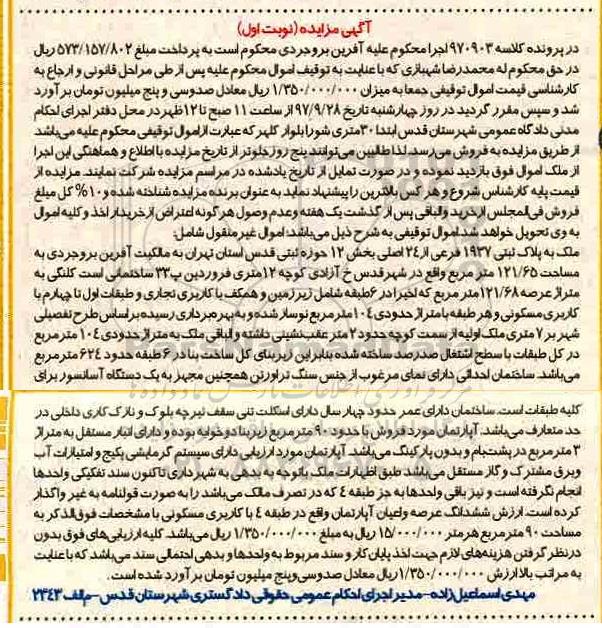 آگهی مزایده (نوبت اول)
در پرونده کلاسه ۹۷۰۹۰۳ اجرا محکوم علیه آفرین بروجردی محکوم است به پرداخت مبلغ ۵۷۳/۱۵۷/۸۰۲ ریال
در حق محکوم له محمدرضا شهبازی که با عنایت به توقیف اموال محکوم علیه پس از طی مراحل قانونی و ارجاع به
کارشناسی قیمت اموال توقیفی جمعا به میزان ۱/۳۵۰/۰۰۰/۰۰۰ ریال معادل صدوسی و پنج میلیون تومان برآورد
شد و سپس مقرر گردید در روز چهارشنبه تاریخ ۹۷/۹/۲۸ از ساعت ۱۱ صبح تا ۱۲ ظهر در محل دفتر اجرای احکام
مدنی دادگاه عمومی شهرستان قدس ابتدا ۳۰متری شورا بلوار کلهر که عبارت از اموال توقیفی محکوم علیه می‌باشد
از طریق مزایده به فروش می‌رسد. لذا طالبین می‌توانند پنج روز جلوتر از تاریخ مزایده با اطلاع و هماهنگی این اجرا
از ملک اموال فوق بازدید نموده و در صورت تمایل از تاریخ یادشده در مراسم مزایده شرکت نمایند. مزایده از
قیمت پایه کارشناس شروع و هر کس بالاترین را پیشنهاد نماید به عنوان برنده مزایده شناخته شده و ۱۰% کل مبلغ
فروش فی‌المجلس از خرید والباقی پس از گذشت یک هفته و عدم وصول هرگونه اعتراض از خریدار اخذ و کلیه اموال
به وی تحویل خواهد شد. اموال توقیفی به شرح ذیل می‌باشد: اموال غیرمنقول شامل:
ملک به پلاک ثبتی ۱۹۳۷ فرعی از ۲۴ اصلی بخش ۱۲ حوزه ثبتی قدس استان تهران به مالکیت آفرین بروجردی به
مساحت ۱۲۱/۶۵ متر مربع واقع در شهر قدس خ آزادی کوچه ۱۲متری فروردین پ۳۳ ساختمانی است کلنگی به
متراژ عرصه ۱۲۱/۶۸متر مربع که اخیرا در ۶طبقه شامل زیرزمین و همکف با کاربری تجاری و طبقات اول تا چهارم با
کاربری مسکونی و هر طبقه با متراژ حدودی ۱۰۴مترمربع نوساز شده و به بهره‌برداری رسیده براساس طرح تفصیلی
شهر بر ۷ متری ملک اولیه از سمت کوچه حدود ۲ متر عقب‌نشینی داشته و الباقی ملک به متراژ حدودی ۱۰۴ مترمربع
در کل طبقات با سطح اشتغال صددرصد ساخته شده بنابراین زیربنای کل ساخت بنا در ۶ طبقه حدود ۶۲۴ مترمربع
می‌باشد. ساختمان احداثی دارای نمای مرغوب از جنس سنگ تراورتن همچنین مجهز به یک دستگاه آسانسور برای
کلیه طبقات است. ساختمان دارای عمر حدود چهار سال دارای اسکلت بتنی سقف تیرچه بلوک و نازک کاری داخلی در
حد متعارف می‌باشد. آپارتمان مورد فروش با حدود ۹۰ متر مربع زیربنا دوخوابه بوده و دارای انبار مستقل به متراژ
۳ مترمربع در پشت‌بام و بدون پارکینگ می‌باشد. آپارتمان مورد ارزیابی دارای سیستم گرمایشی پکیج و امتیازات آب
وبرق مشترک و گاز مستقل می‌باشد. طبق اظهارات ملک باتوجه به بدهی به شهرداری تاکنون سند تفکیکی واحدها
انجام نگرفته است و نیز باقی واحدها به جز طبقه ۴ که در تصرف مالک می‌باشد را به صورت قولنامه به غیر واگذار
کرده است. ارزش ششدانگ عرصه واعیان آپارتمان واقع در طبقه ۴ با کاربری مسکونی با مشخصات فوق‌الذکر به
مساحت ۹۰ مترمربع هرمتر ۱۵/۰۰۰/۰۰۰ ریال به مبلغ ۱/۳۵۰/۰۰۰/۰۰۰ ریال می‌باشد. کلیه ارزیابی‌های فوق بدون
درنظر گرفتن هزینه‌های لازم جهت اخذ پایان کار و سند مربوط به واحدها و بدهی احتمالی سند می‌باشد که با عنایت
به مراتب بالا ارزش ۱/۳۵۰/۰۰۰/۰۰۰ریال معادل صدوسی‌وپنج میلیون تومان برآورد شده است.
مهدی اسماعیل‌زاده-مدیر اجرای احکام عمومی حقوقی دادگستری شهرستان قدس-م‌الف ۲۳۴۳